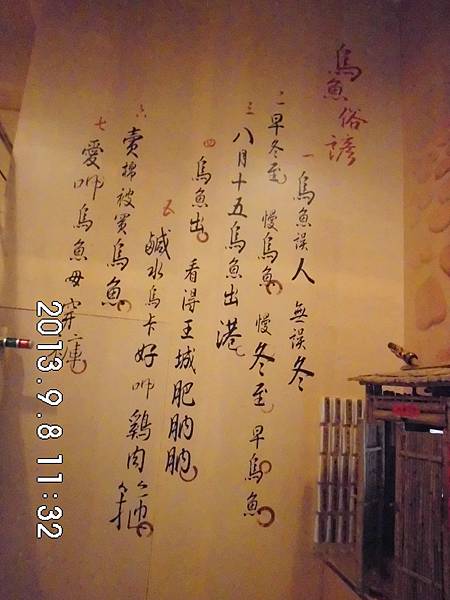 烏魚俗諺
一 烏魚誤人 無誤冬
二 早冬至 慢烏魚 慢冬至 早烏魚
三 八月十五烏魚出港
四 烏魚出 看得王城肥肭肭
五 鹹水烏卡好呷鷄肉箍
六 賣棉被買烏魚
七 愛呷烏魚毋穿褲
2013.9.8 11:32